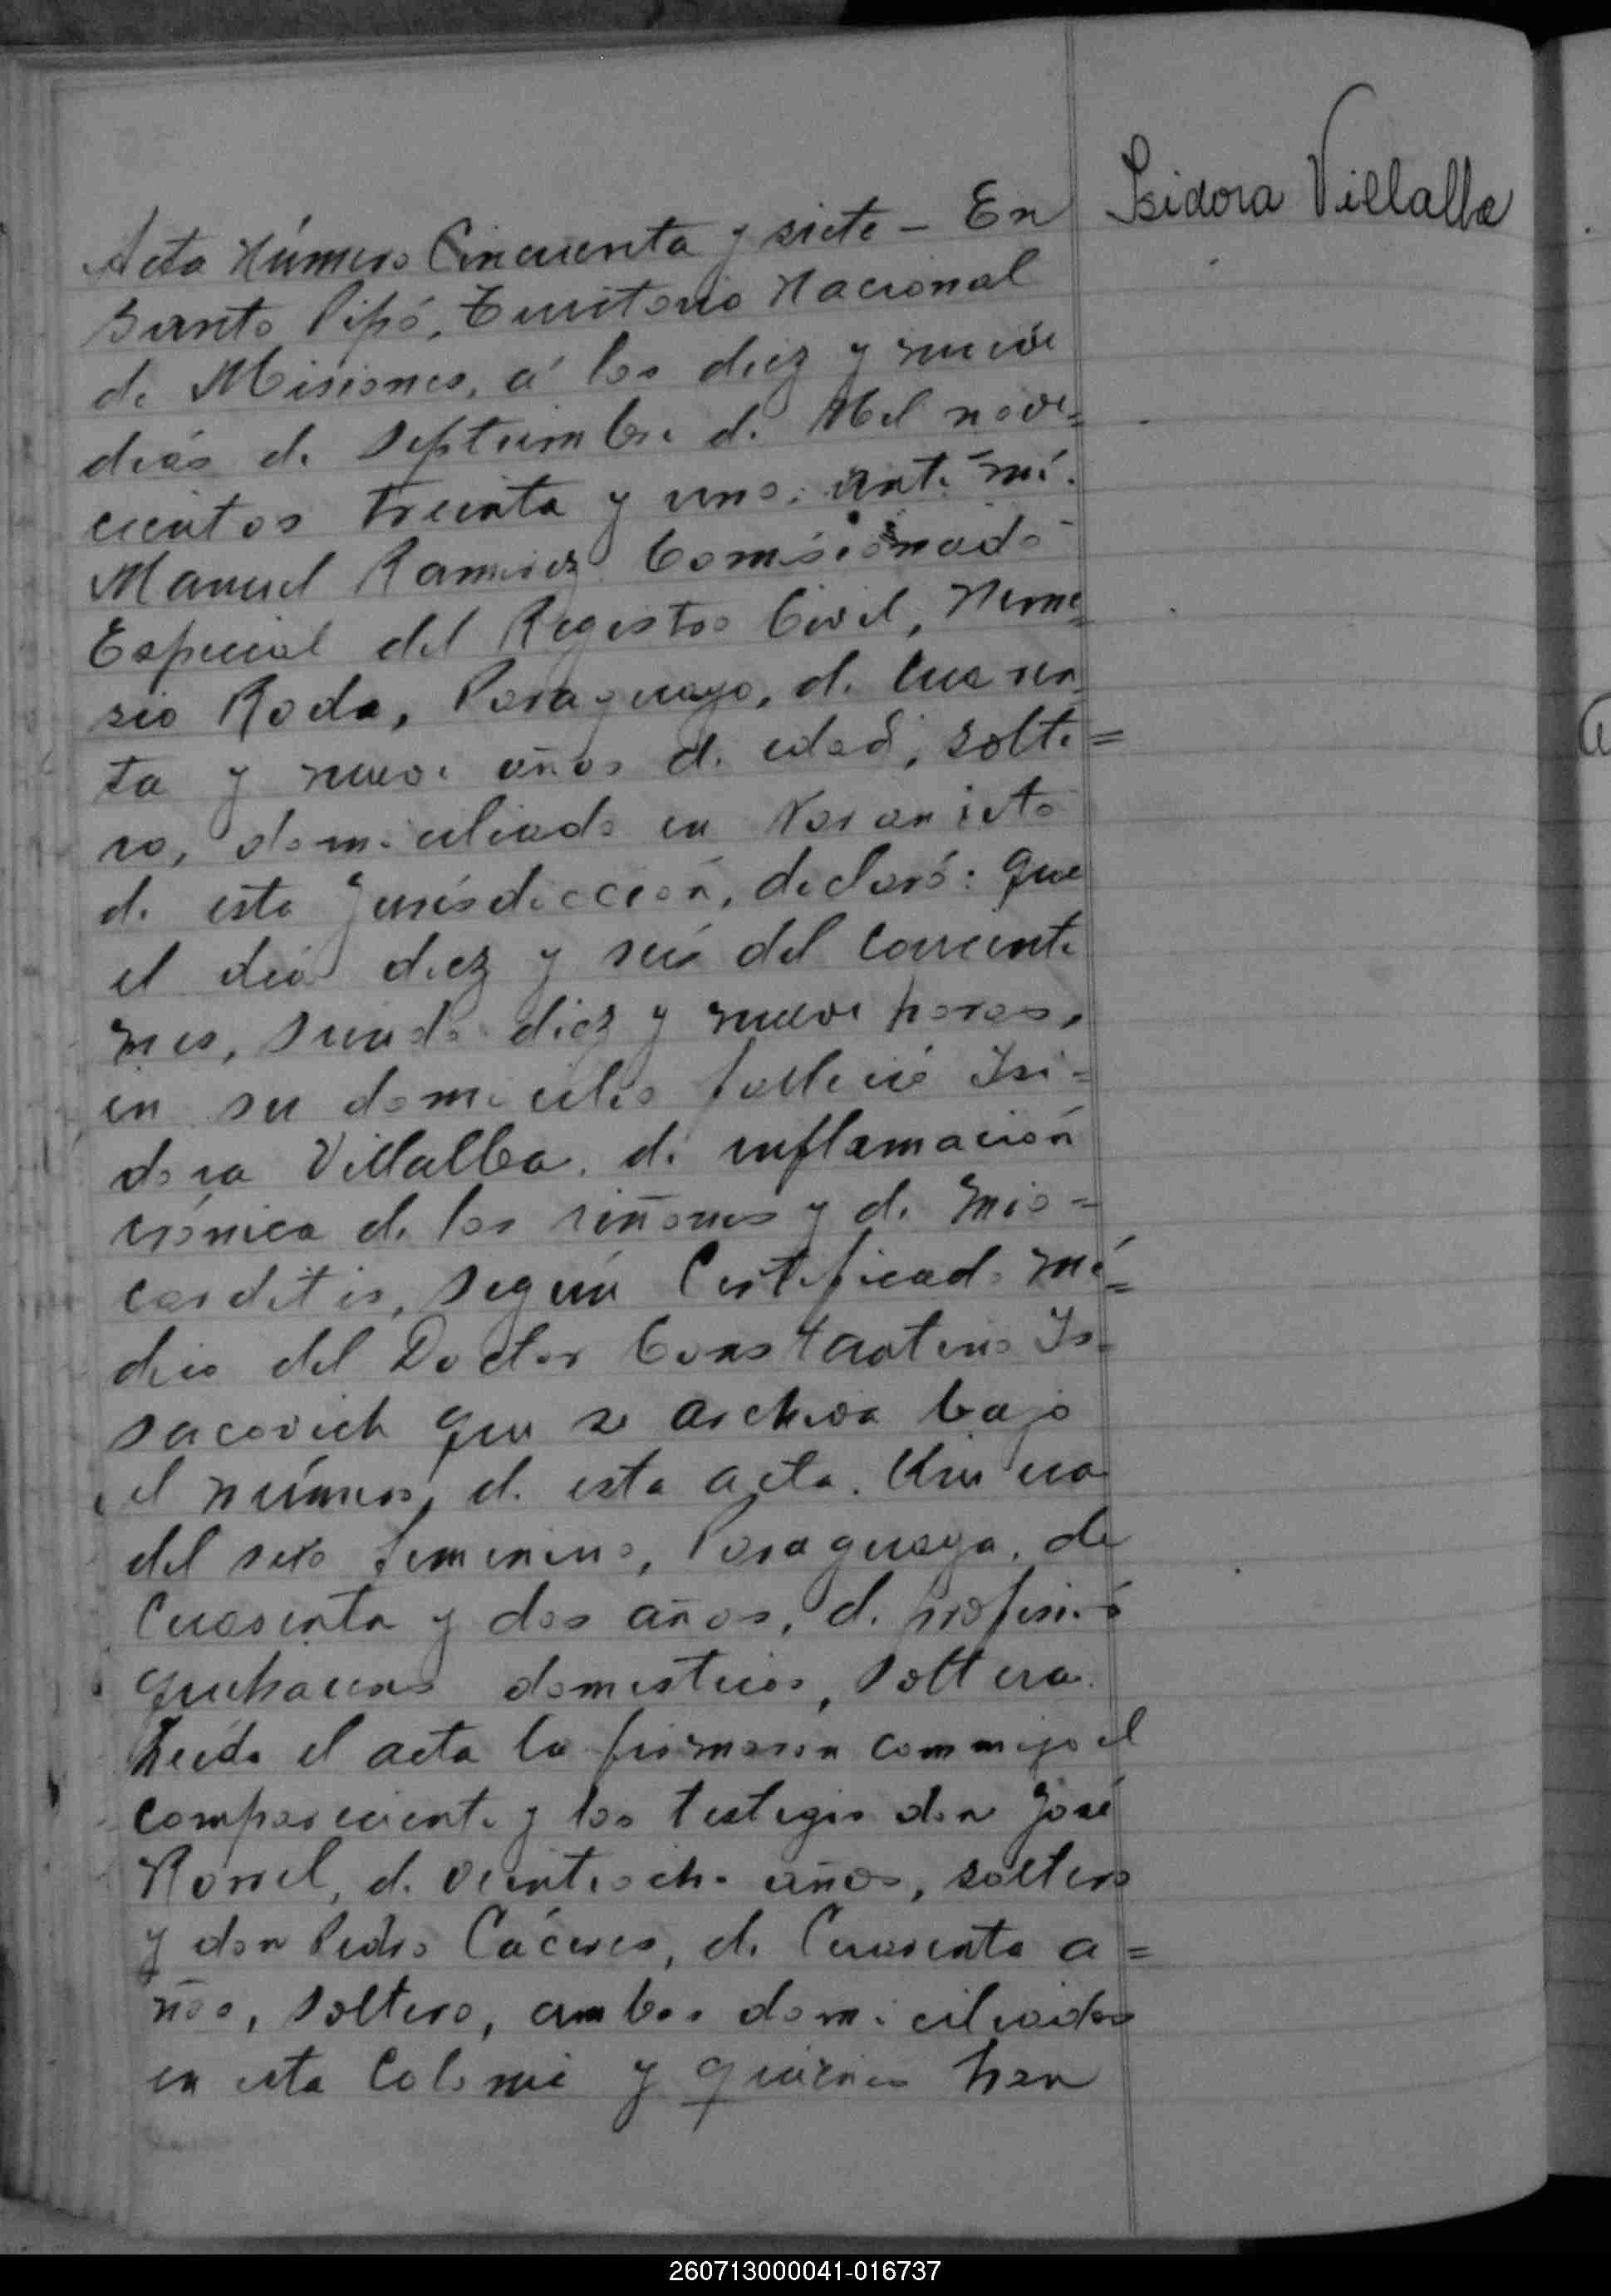 Isidora Villalba
Acta Número Cincuenta y siete - En
Santo Pipó, Territorio Nacional
de Misiones, á los diez y nueve
días de Septiembre de Mil nove=
cientos treinta y uno, ante mí.
Manuel Ramirez Comisionado
Especial del Registro Civil, Neme=
sio Roda, Paraguayo, de Cuaren
ta y nueve años de edad, solte=
ro, domiciliado en Naranjito
de esta Jurisdicción, declaró: que
el día diez y seis del corriente
mes, siendo diez y nueve horas,
en su domicilio falleció Isi=
dora Villalba, de inflamación
crónica de los riñones y de mio=
carditis, según Certificado mé=
dico del Doctor Constantino Is=
sacovich que se archiva bajo
el número de esta acta. Que era
del sexo femenino, Paraguaya, de
Cuarenta y dos años, de profesión
quehaceres domesticos, Soltera.
Leída el acta la firmaron conmigo el
compareciente y los testigos don José
de veintiocho años, soltero
y don Pedro Cáceres, de Cuarenta a=
ños, soltero, ambos domiciliados
en esta Colonia y quienes han
260713000041-016737